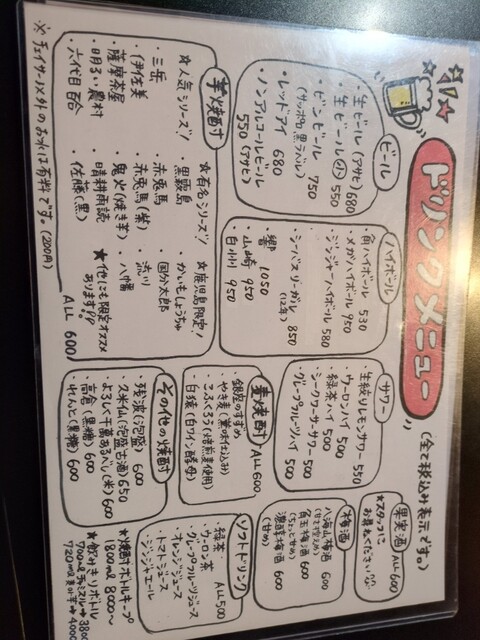 ドリンクメニュー
(全て税込み表示です。)
ビール
・生ビール(アサヒ) 680
・生ビール 小 550
・ビンビール 750
(サッポロ黒ラベル)
・レッドアイ 680
・ノンアルコールビール
550 (アサヒ)
ハイボール
・角ハイボール 530
・メガハイボール 950
・ジンジャーハイボール 580
・シーバスリーガル 850
(12年)
・響 1050
・山崎 950
・白州 950
サワー
・生絞りレモンサワー 550
・ウーロンハイ 500
・緑茶ハイ 500
・シークワーサーサワー 500
・グレープフルーツハイ 500
果実酒 ALL 600
★スタッフに
お尋ねください
梅酒
八海山梅酒 600
(甘さ控えめ)
600
(ちょっと甘め)
濃醇梅酒 600
(甘め)
芋焼酎
★人気シリーズ!
・三岳
・伊佐美
・薩摩茶屋
・明るい農村
・六代目百合
★有名シリーズ!
・黒霧島
・赤兎馬
・赤兎馬(紫)
・鬼火(焼き芋)
・晴耕雨読
・佐藤(黒)
★鹿児島限定!
・かいもんしょうちゅう
・国分太郎
・流川
・八幡
★他にも限定オススメ
あります!!
ALL 600
麦焼酎 ALL 600
・銀座のすずめ
・やき麦(薫味仕込み)
・こふくろう(焙煎麦使用)
・白猿(白ワイン酵母)
その他の焼酎
・残波(泡盛) 600
・久米仙(泡盛古酒) 650
・よろしく千萬あるべし(米) 600
・高倉(黒糖) 600
・れんと(黒糖) 600
ソフトドリンク
ALL 500
・緑茶
・ウーロン茶
・グレープフルーツジュース
・オレンジジュース
・トマトジュース
・ジンジャエール
★焼酎ボトルキープ
1800ml 8000〜
★飲みきりボトル
※チェイサー以外のお水は有料です。(200円)